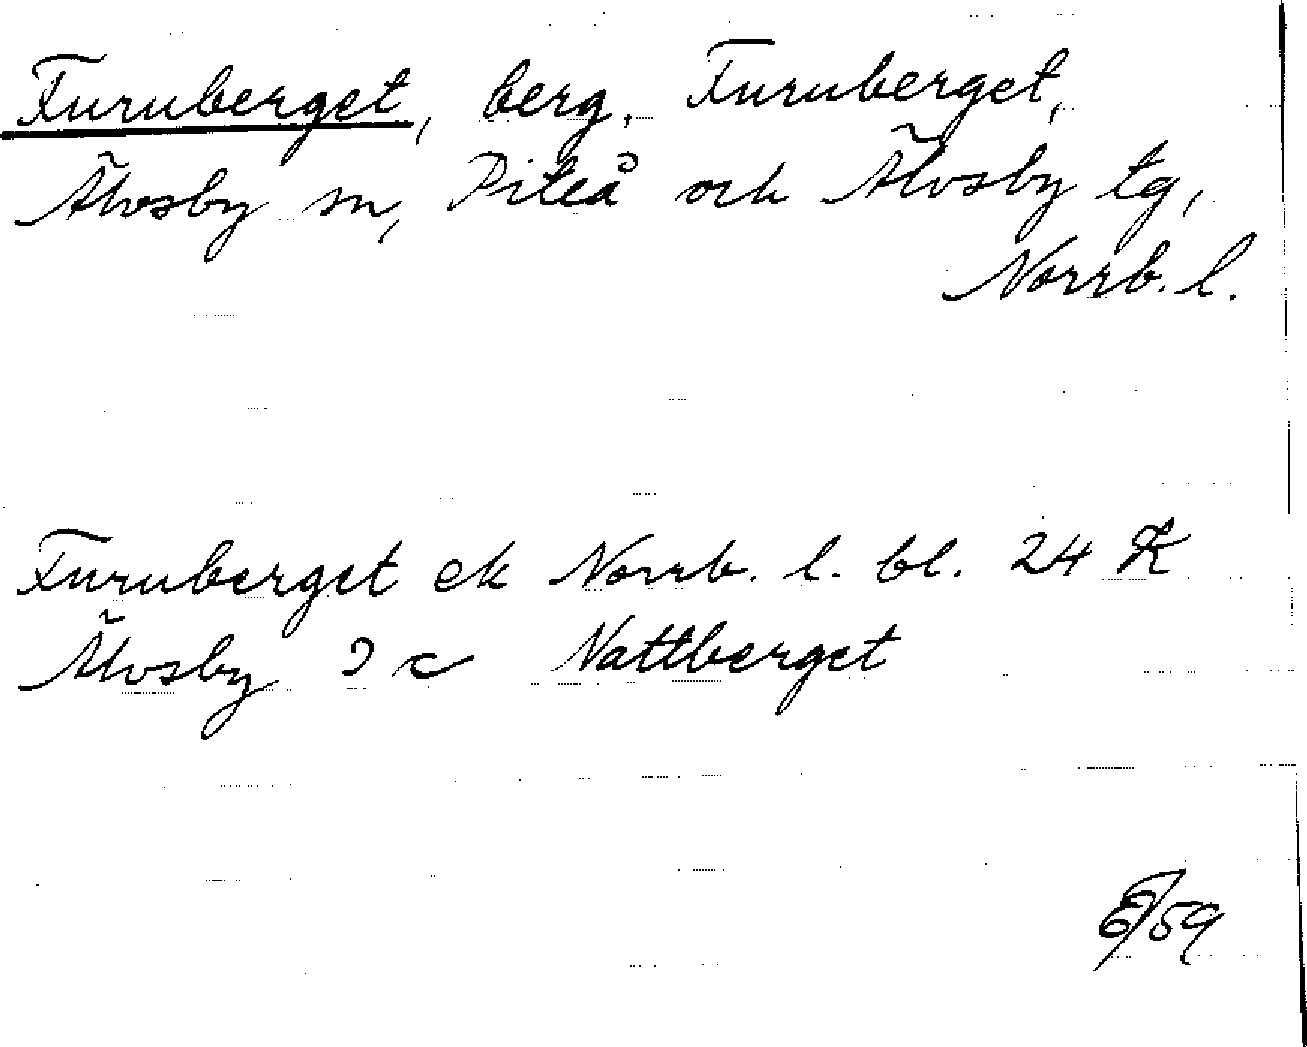 Furuberget, berg, Furuberget,
Älvsby sn, Piteå och Älvsby tg,
Norrb. l.
Furuberget ek Norrb. l. bl. 24 K
Älvsby 2 c Nattberget